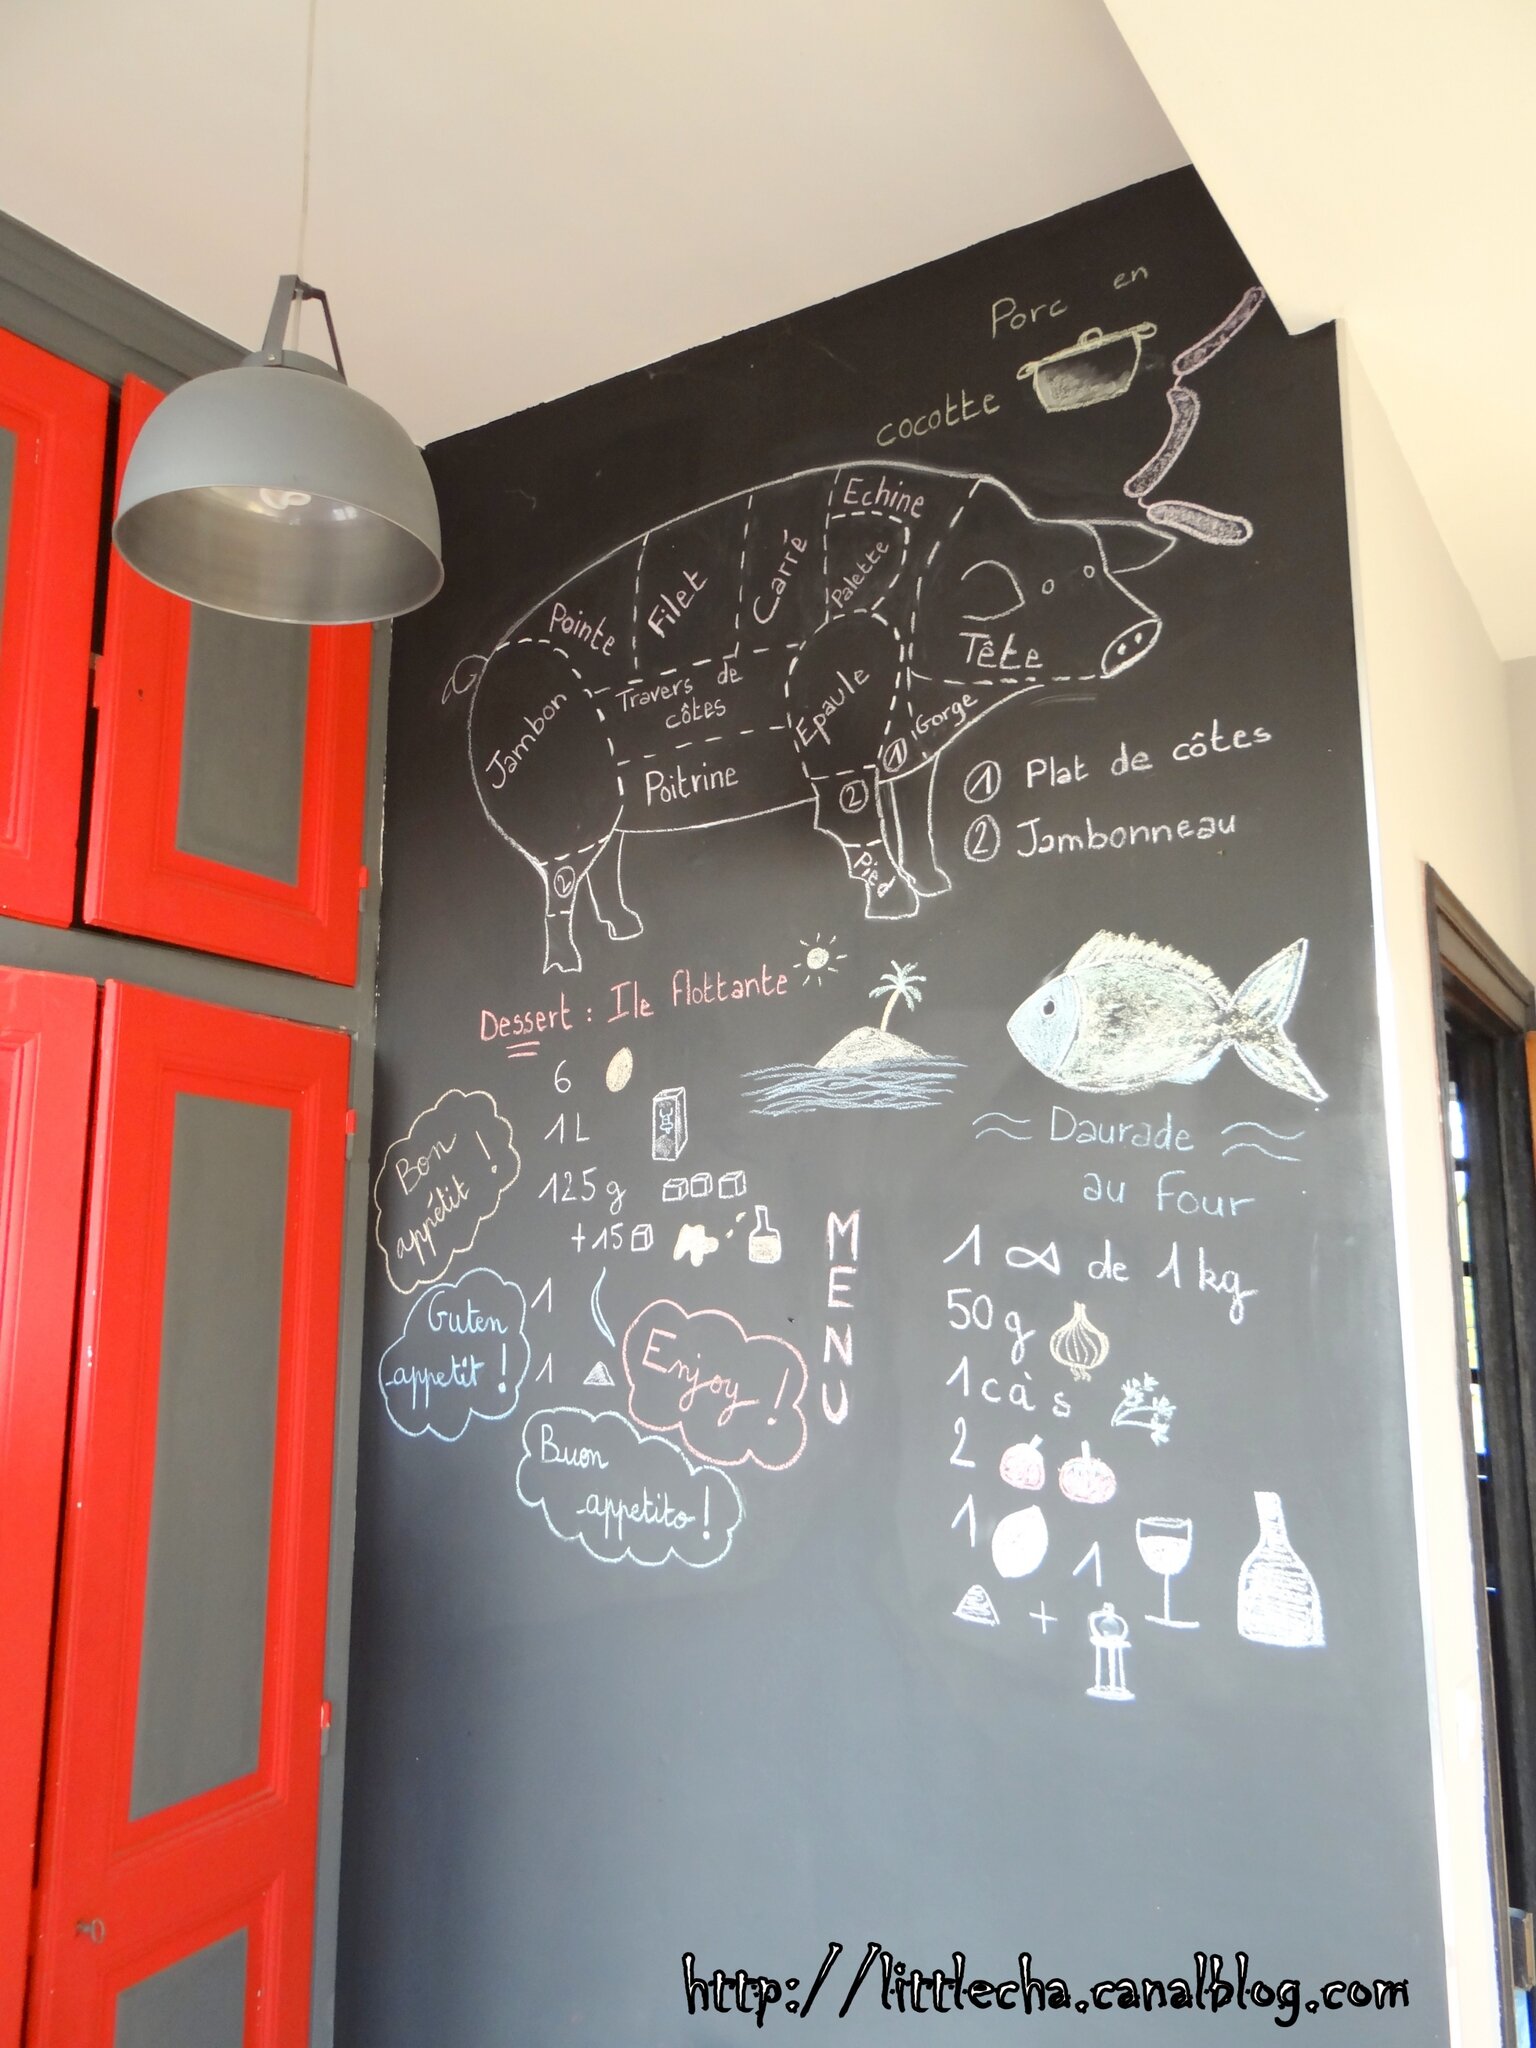 Porc en
cocotte
Echine
Palette
Carré
Filet
Pointe
Jambon
Travers de
côtes
Poitrine
Epaule
Tête
Gorge
1
2
Pied
2
1 Plat de côtes
2 Jambonneau
Dessert : Ile flottante
6
1L
125g
+15
1
1
Bon
appétit !
Guten
appetit !
Enjoy !
Buon
appetito !
MENU
Daurade
au four
1 de 1kg
50g
1 c à s
2
1
1
+
http://littlecha.canalblog.com